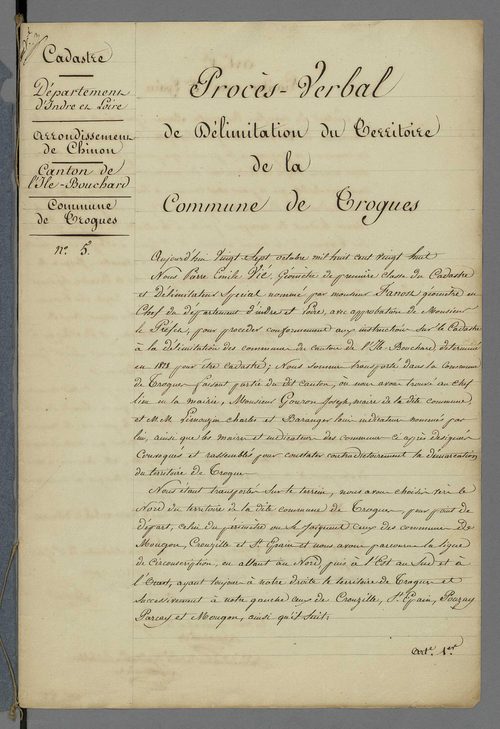 Cadastre
Département
d'Indre et Loire
Arrondissement
de Chinon
Canton de
l'Ile-Bouchard
Commune
de Trogues
N.º 5.
Procès-Verbal
de Délimitation du Territoire
de la
Commune de Trogues
Aujourd'hui Vingt Sept octobre mil huit cent vingt huit
Nous Pierre Emile Vié, Géomètre de première classe du Cadastre
et délimitateur Spécial nommé par monsieur géomètre en
Chef du département d'indre et Loire, avec approbation de Monsieur
le Préfet, pour procéder conformément aux instructions sur le Cadastre
à la délimitation des communes du canton de l'Ile-Bouchard déterminé
en 1828 pour être cadastré; Nous sommes transporté dans la Commune
de Trogues faisant partie du dit Canton, où nous avons trouvé au chef
lieu en la mairie, Monsieur Gouron Joseph, maire de la dite commune
et M.M. Limouzin charles et Baranger Louis indicateurs nommés par
lui, ainsi que les maires et indicateurs des communes ci après désignés
Convoqués et rassemblés pour constater contradictoirement la démarcation
du territoire de Trogues
Nous étant transportés sur le terrein, nous avons choisi vers le
Nord du territoire de la dite commune de Trogues pour point de
départ, celui du périmètre où se joignent ceux des communes De
Mougon, Crouzille et St. Epain et nous avons parcouru la ligne
de circonscription, en allant au Nord, puis à l'Est au Sud et à
l'Ouest, ayant toujours à notre droite le territoire de Trogues et
Successivement à notre gauche ceux de Crouzille, St. Epain, Pouzay
Parçay et Mougon, ainsi qu'il suit:
Art.e 1.er